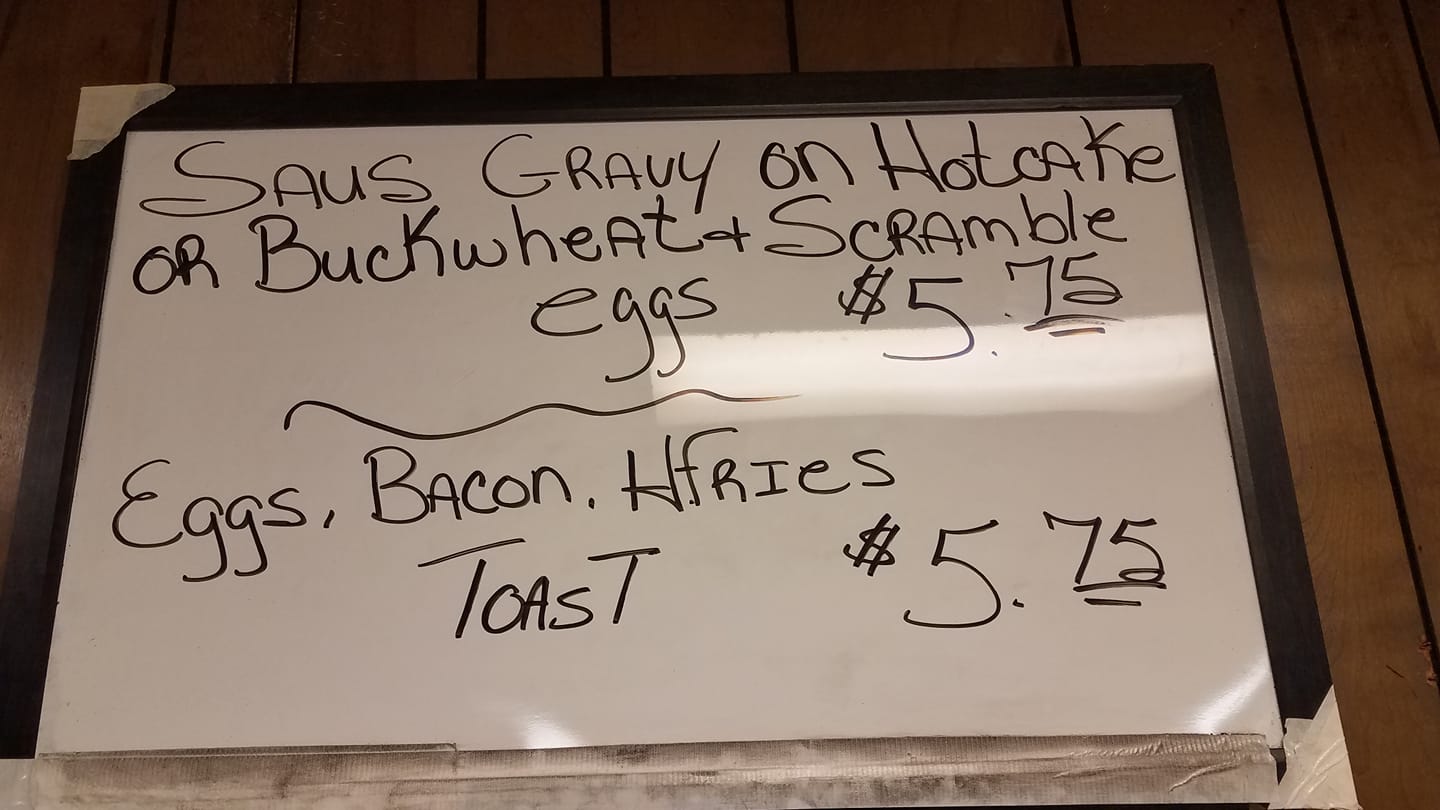 SAUS GRAVY on HotcAKe
OR BuckwheAt & SCRAmble
eggs $5.75
Eggs, BAcon. HfRIes
TOAST $5.75